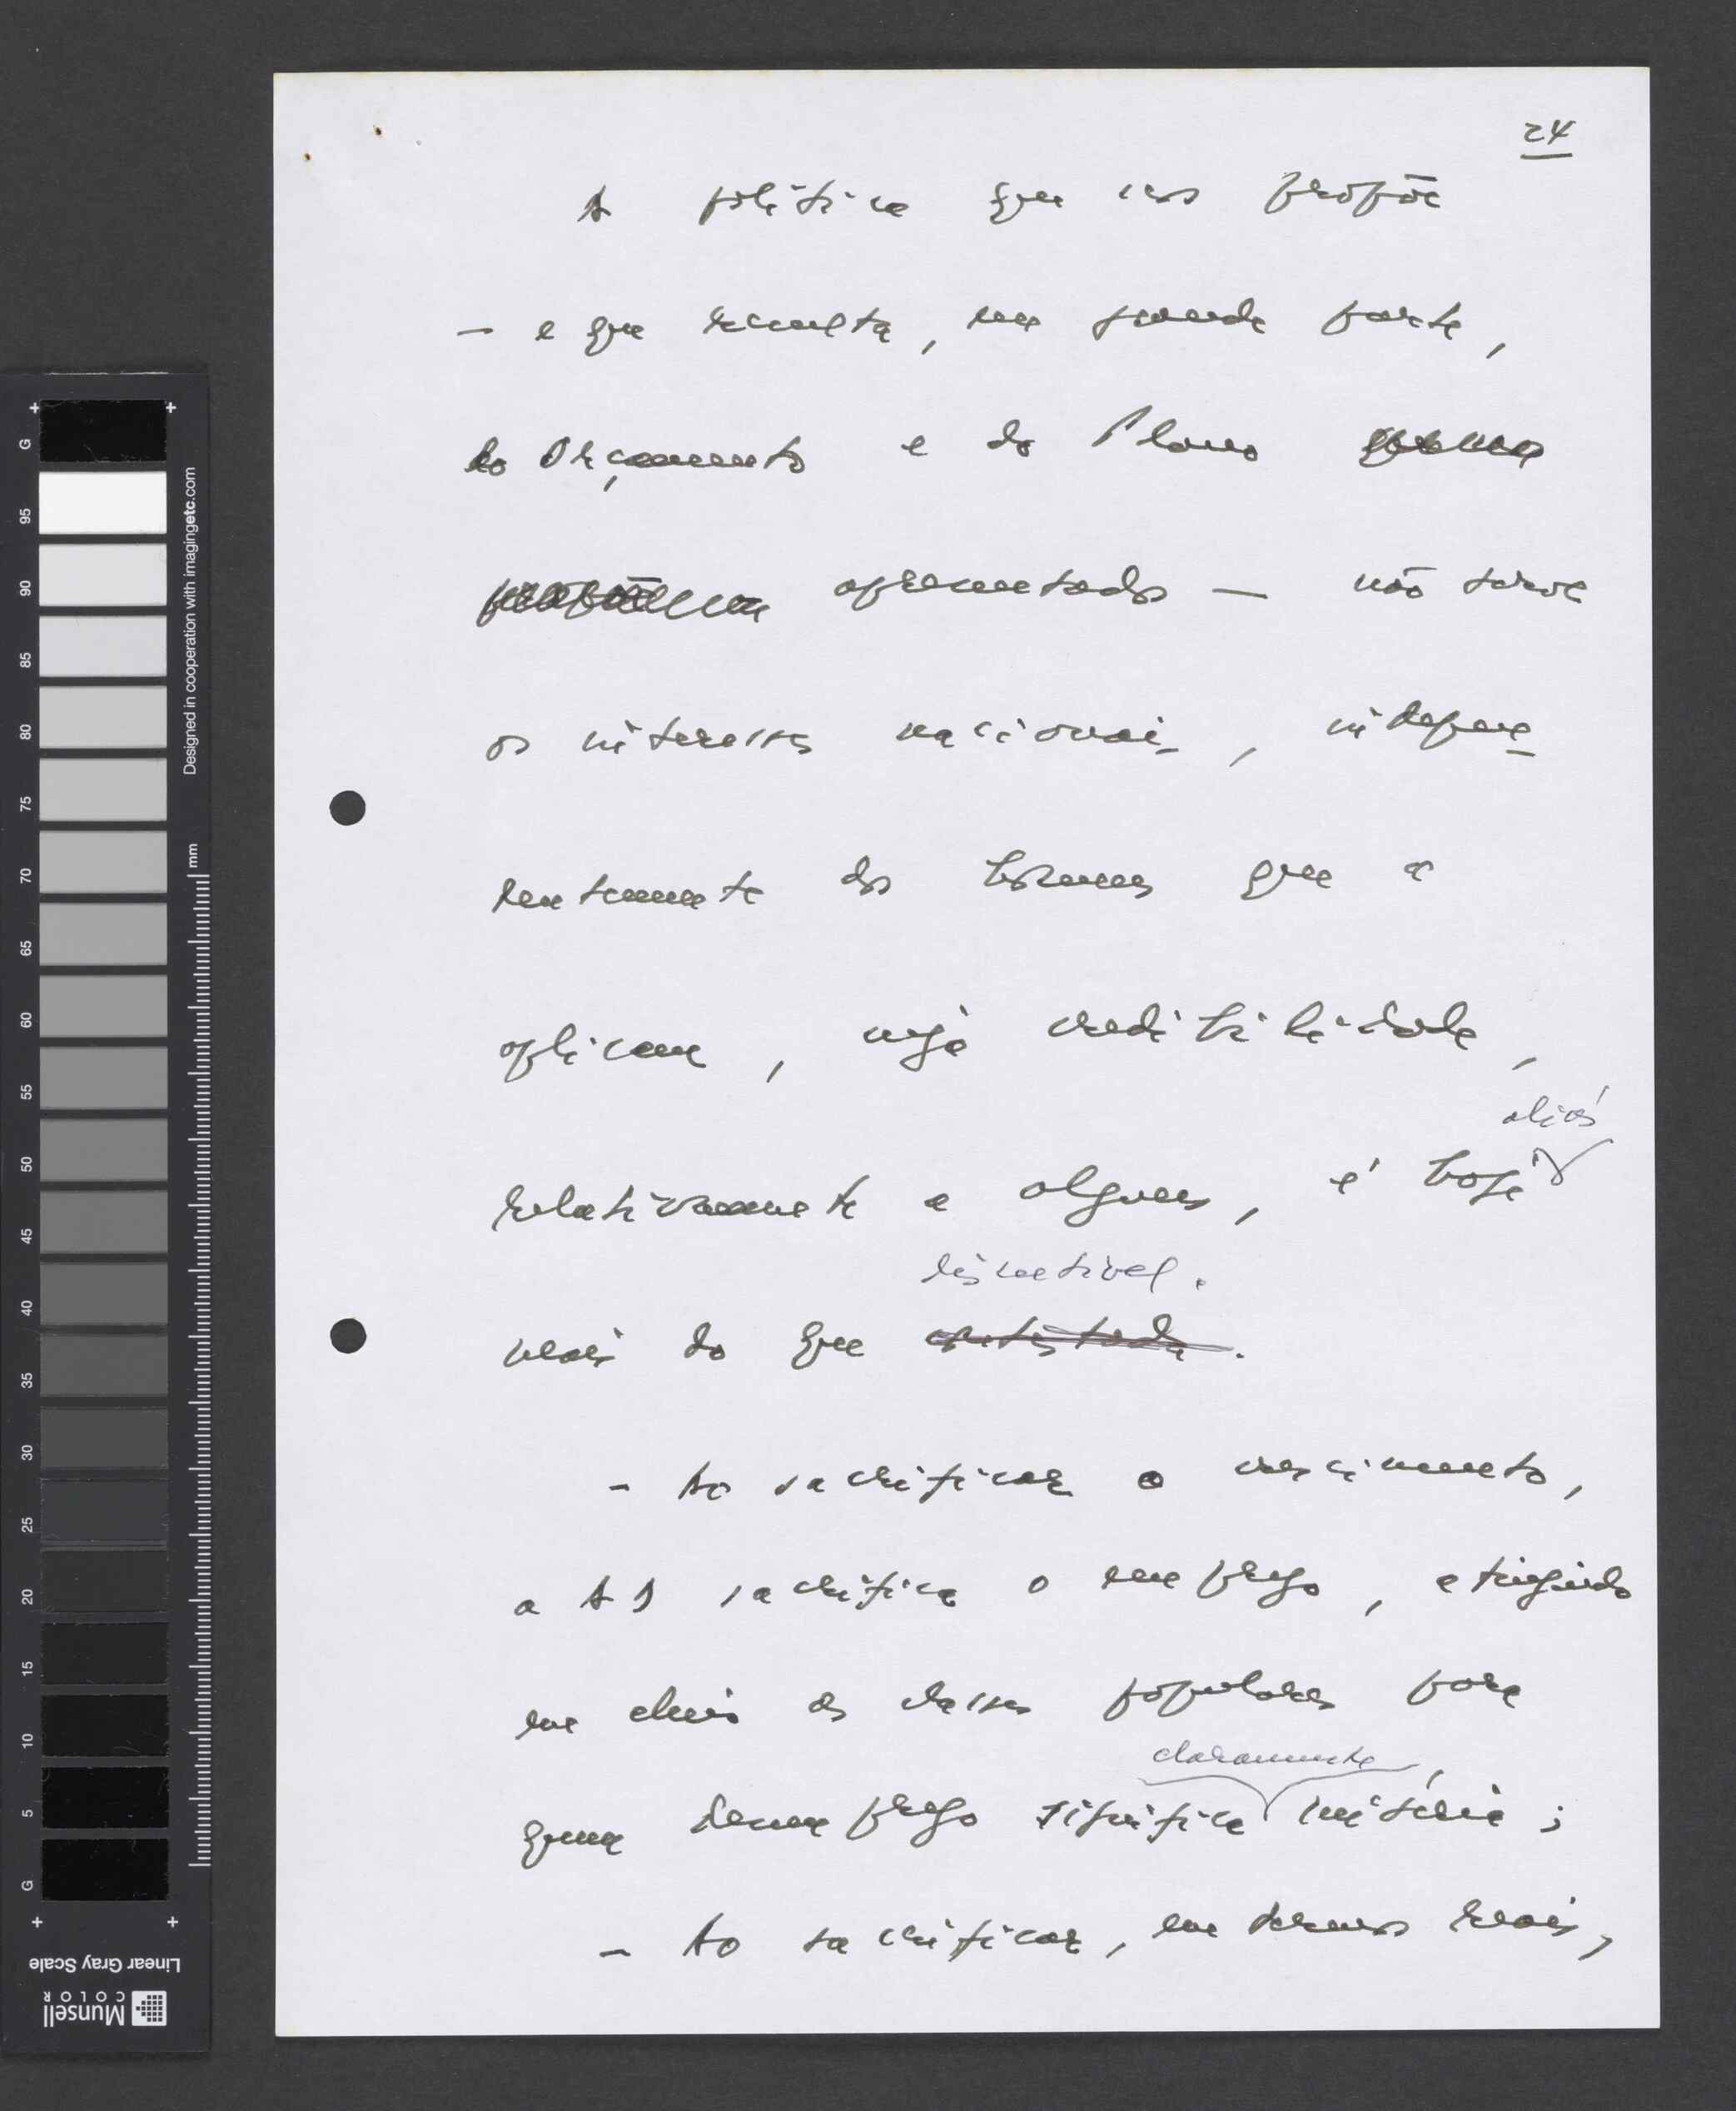 24
A política que nos propõe
- e que resulta, em grande parte,
do Orçamento e do Plano
apresentados — não serve
os interesses nacionais, indepen
dentemente dos homens que a
aplicam, cuja credibilidade,
aliás
relativamente a alguns, é hoje
discutível.
mais do que contestada.
- Ao sacrificar o crescimento,
a AD sacrifica o emprego, atingindo
em cheio as classes populares para
claramente
quem desemprego significa miséria;
- Ao sacrificar, em termos reais,
+ +
G 95 90 85 80 75 70 65 60 55 50 45 40 35 30 25 20 15 10 5 G
Designed in cooperation with imagingetc.com
mm
+ +
Linear Gray Scale
Munsell
COLOR